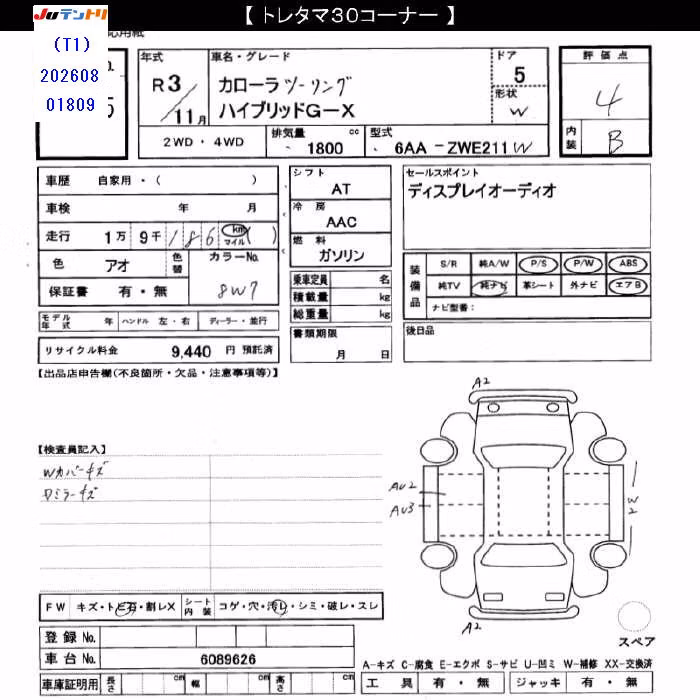 【 トレタマ３０コーナー 】
JUテントリ
応用紙
(T1)
202608
01809
5
年式
R3/11月
車名・グレード
カローラツーリング
ハイブリッドG－X
ドア
5
形状
W
評価点
4
内装
B
2WD・4WD
排気量 cc
1800
型式
6AA－ZWE211W
車歴 自家用・( )
車検 年 月
走行 1万 9千 186 km マイル ( )
色 アオ 色替 カラーNo. 8W7
保証書 有・無
シフト
AT
冷房
AAC
燃料
ガソリン
セールスポイント
ディスプレイオーディオ
乗車定員 名
積載量 kg
総重量 kg
装備品
S/R 純A/W P/S P/W ABS
純TV 純ナビ 革シート 外ナビ エアB
ナビ型番：
モデル年式 年 ハンドル 左・右 ディーラー・並行
書類期限
月 日
後日品
リサイクル料金 9,440 円 預託済
【出品店申告欄(不良箇所・欠品・注意事項等)】
【検査員記入】
Wカバーキズ
Dミラーキズ
A2
AU2
AU3
W2
A2
スペア
FW キズ・トビ石・割レX シート内装 コゲ・穴・汚レ・シミ・破レ・スレ
登録No.
車台No. 6089626
A-キズ C-腐食 E-エクボ S-サビ U-凹ミ W-補修 XX-交換済
車庫証明用 長さ cm 幅 cm 高さ cm
工具 有・無 ジャッキ 有・無